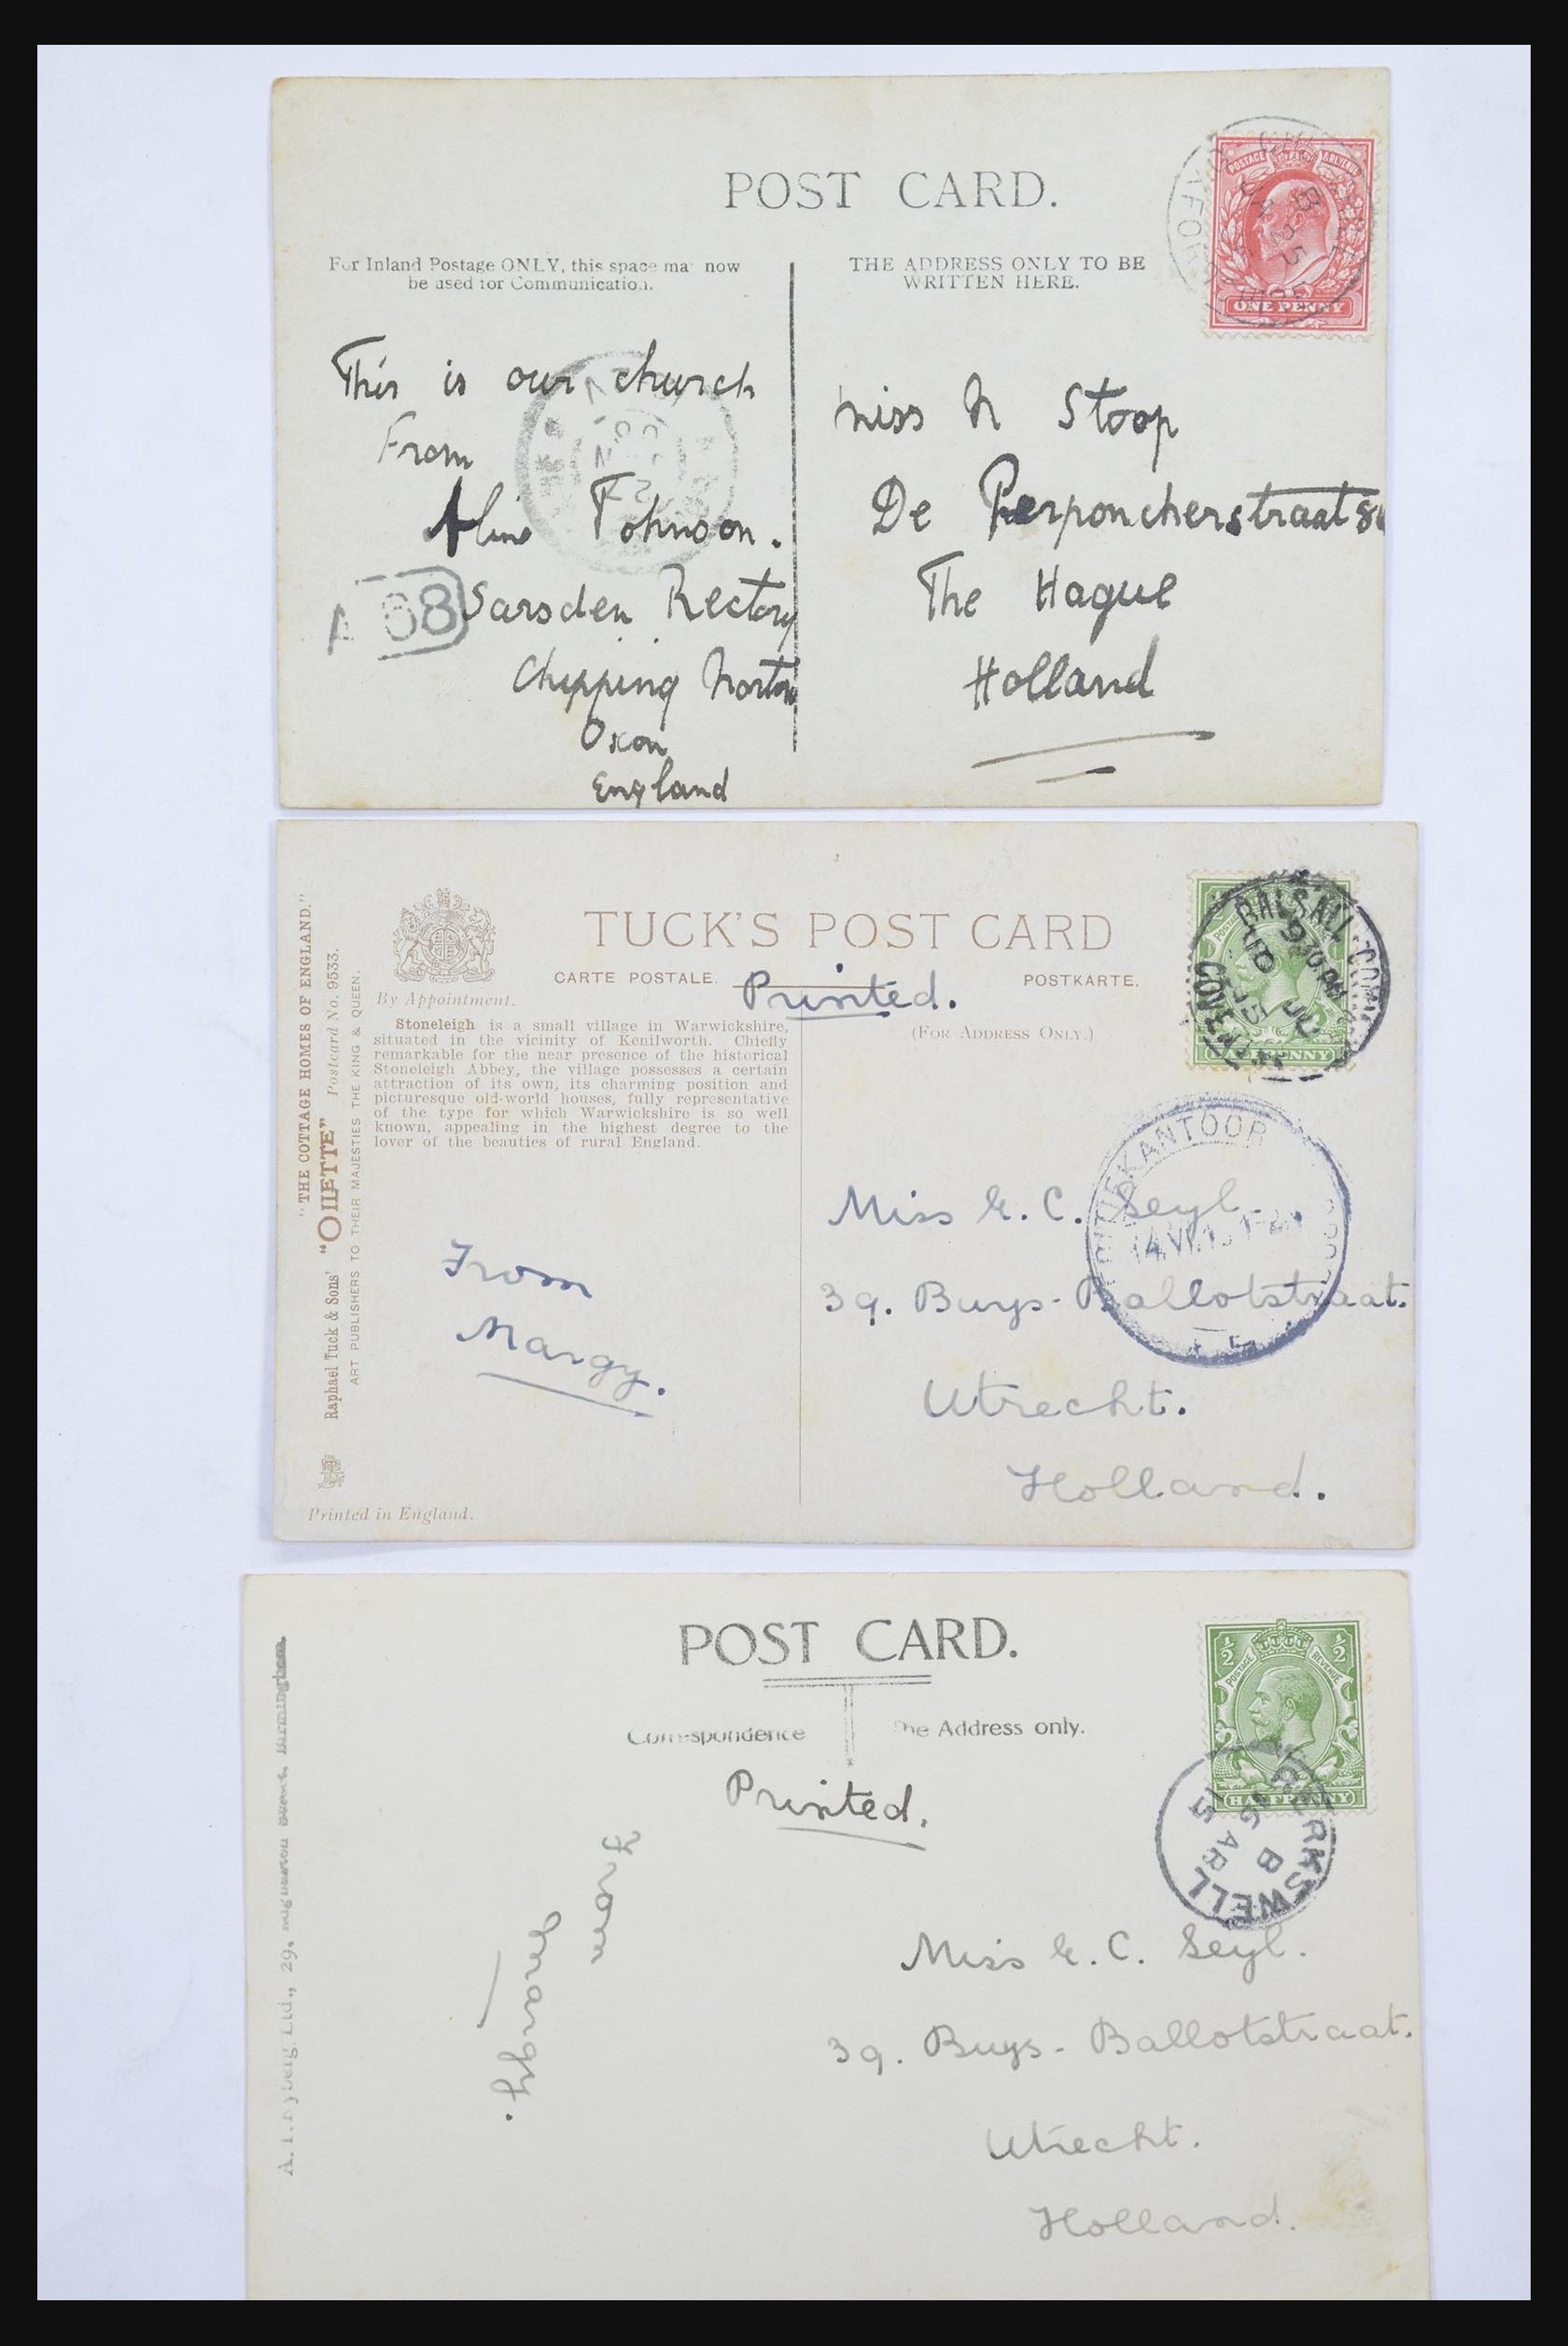 POST CARD.
For Inland Postage ONLY, this space ma now
be used for Communication.
THE ADDRESS ONLY TO BE
WRITTEN HERE.
POSTAGE & REVENUE
ONE PENNY
This is our church
From
Aline Johnson.
Sarsden Rectory
Chipping Norton
Oxon
England
Miss N Stoop
De Perponcherstraat
The Hague
Holland
"THE COTTAGE HOMES OF ENGLAND."
Raphael Tuck & Sons' "OILETTE" Postcard No. 9533.
ART PUBLISHERS TO THEIR MAJESTIES THE KING & QUEEN.
By Appointment.
TUCK'S POST CARD
CARTE POSTALE.
POSTKARTE.
Printed.
(FOR ADDRESS ONLY.)
Stoneleigh is a small village in Warwickshire,
situated in the vicinity of Kenilworth. Chiefly
remarkable for the near presence of the historical
Stoneleigh Abbey, the village possesses a certain
attraction of its own, its charming position and
picturesque old-world houses, fully representative
of the type for which Warwickshire is so well
known, appealing in the highest degree to the
lover of the beauties of rural England.
BALSALL COMMON
9 30 PM
COVENTRY
From
Margy.
Miss E. C. Seyl.
39. Buys-Ballotstraat.
Utrecht.
Holland.
Printed in England.
POST CARD.
Correspondence
The Address only.
Printed.
½ ½
POSTAGE REVENUE
HALFPENNY
BERKSWELL
B
AP
15
From
Margy.
Miss E. C. Seyl.
39. Buys-Ballotstraat.
Utrecht.
Holland.